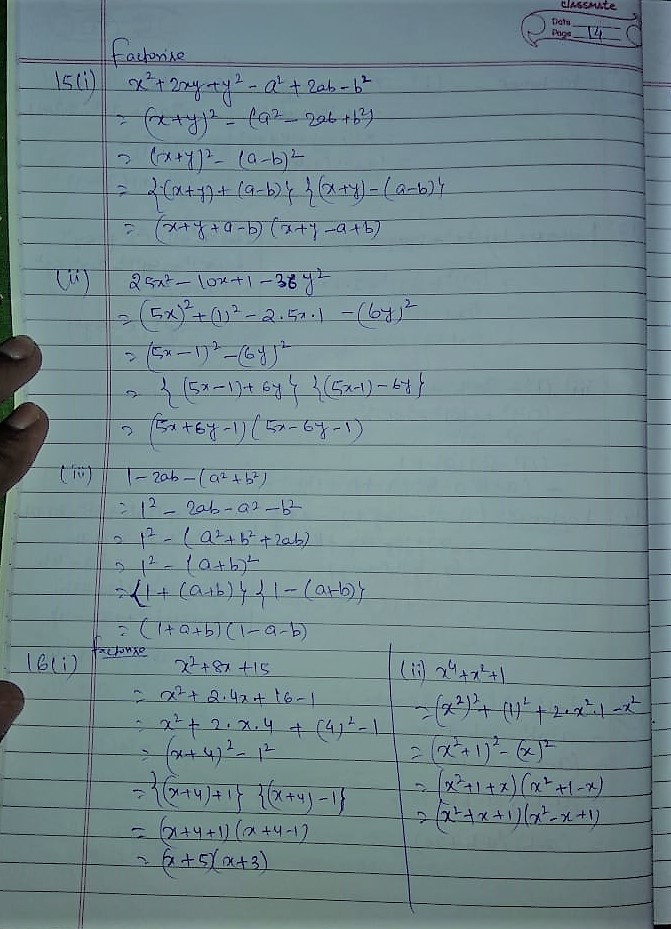 classmate
Date
Page 14
factorise
15(i) x² + 2xy + y² - a² + 2ab - b²
= (x+y)² - (a² - 2ab + b²)
= (x+y)² - (a-b)²
= {(x+y) + (a-b)} {(x+y) - (a-b)}
= (x+y+a-b) (x+y-a+b)
(ii) 25x² - 10x + 1 - 36y²
= (5x)² + (1)² - 2.5x.1 - (6y)²
= (5x-1)² - (6y)²
= {(5x-1) + 6y} {(5x-1) - 6y}
= (5x+6y-1) (5x-6y-1)
(iii) 1 - 2ab - (a² + b²)
= 1² - 2ab - a² - b²
= 1² - (a² + b² + 2ab)
= 1² - (a+b)²
= {1 + (a+b)} {1 - (a+b)}
= (1+a+b) (1-a-b)
factorise
16(i) x² + 8x + 15
= x² + 2.4x + 16 - 1
= x² + 2.x.4 + (4)² - 1
= (x+4)² - 1²
= {(x+4)+1} {(x+4)-1}
= (x+4+1) (x+4-1)
= (x+5)(x+3)
(ii) x⁴ + x² + 1
= (x²)² + (1)² + 2.x².1 - x²
= (x²+1)² - (x)²
= (x²+1+x) (x²+1-x)
= (x²+x+1) (x²-x+1)